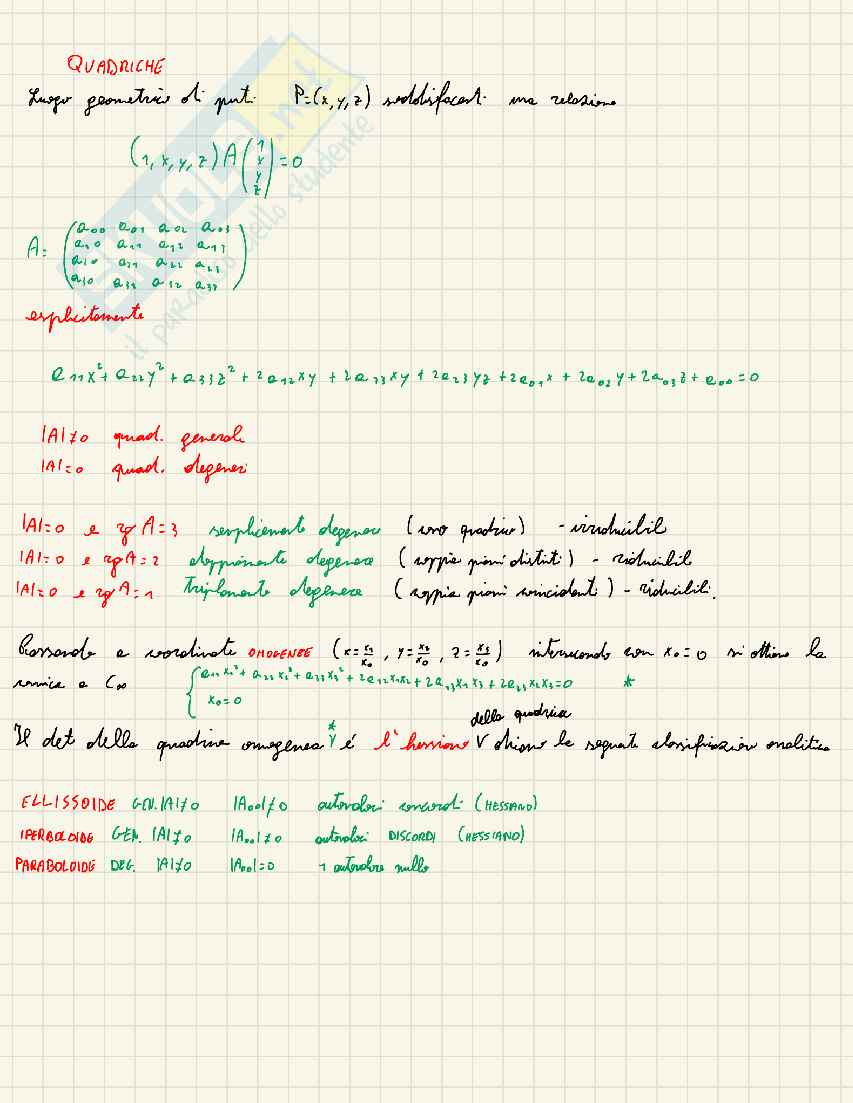 QUADRICHE
Luogo geometrico di punti P=(x,y,z) soddisfacenti una relazione
(1, x, y, z) A (1 x y z) = 0
A= (a00 a01 a02 a03
a10 a11 a12 a13
a20 a21 a22 a23
a30 a31 a32 a33)
esplicitamente
a11x²+ a22y² + a33z² + 2a12xy + 2a13xy + 2a23yz + 2a01x + 2a02y + 2a03z + a00 = 0
|A|≠0 quad. generali
|A|=0 quad. degeneri
|A|=0 e rgA=3 semplicemente degenere (cono quadrico) - irriducibili
|A|=0 e rgA=2 doppiamente degenere (coppia piani distinti) - riducibili
|A|=0 e rgA=1 triplamente degenere (coppia piani coincidenti) - riducibili.
Passando a coordinate OMOGENEE (x=x1/x0, y=x2/x0, z=x3/x0) intersecando con x0=0 si ottiene la
conica a C∞ { a11x1² + a22x2² + a33x3² + 2a12x1x2 + 2a13x1x3 + 2a23x2x3=0 *
x0=0
della quadrica
Il det della quadrica omogenea * é l'hessiano V diamo la seguente classificazione analitica
ELLISSOIDE GEN. |A|≠0 |A00|≠0 autovalori concordi (HESSIANO)
IPERBOLOIDE GEN. |A|≠0 |A00|≠0 autovalori DISCORDI (HESSIANO)
PARABOLOIDE DEG. |A|≠0 |A00|=0 1 autovalore nullo
SKUOLA.net
il paradiso dello studente